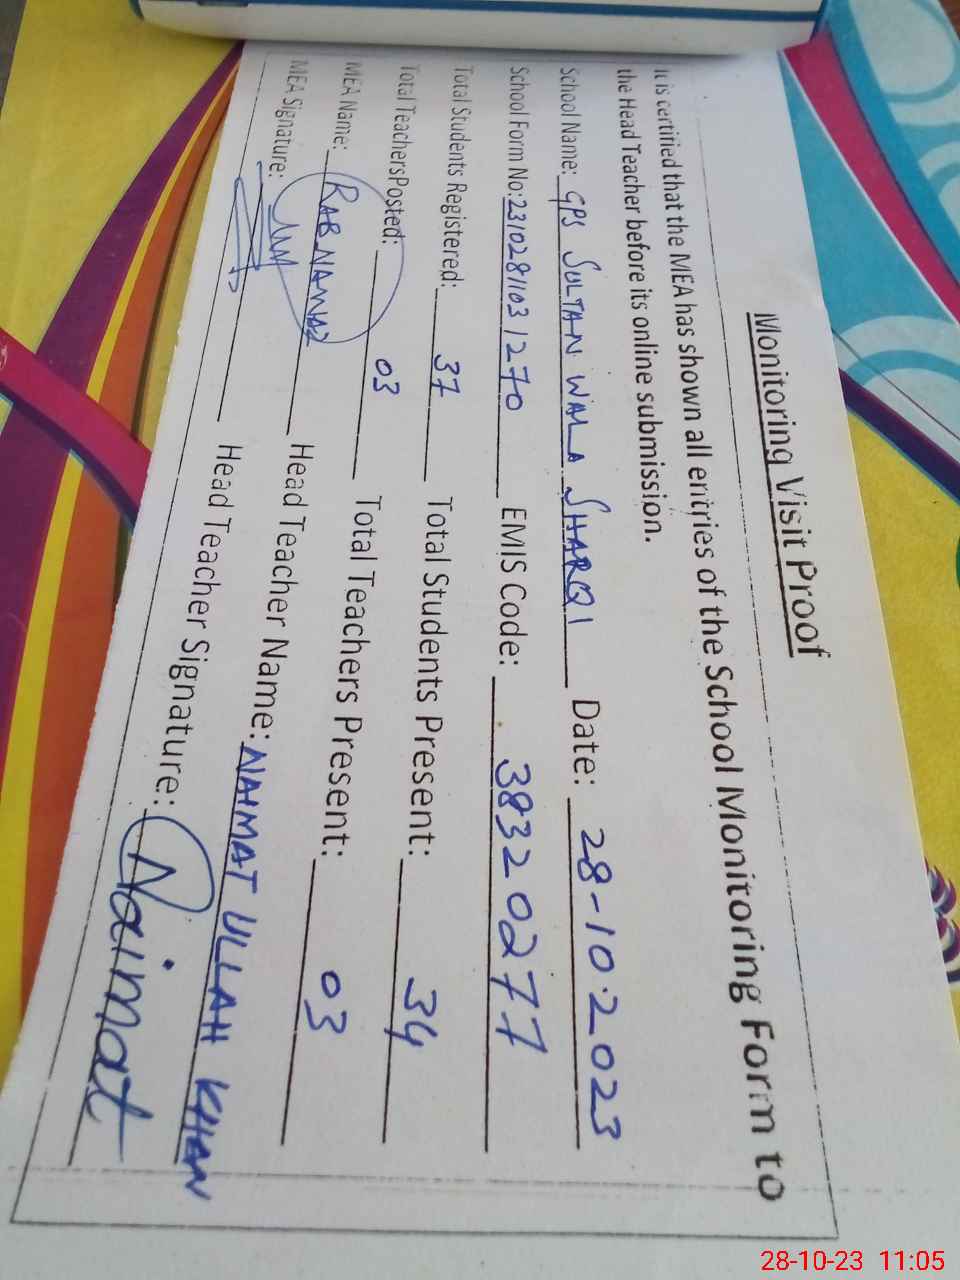 Monitoring Visit Proof
It is certified that the MEA has shown all entries of the School Monitoring Form to
the Head Teacher before its online submission.
School Name: GPS SULTAN WALA SHARQI Date: 28-10-2023
School Form No: 23102811031270 EMIS Code: 38320277
Total Students Registered: 37 Total Students Present: 34
Total TeachersPosted: 03 Total Teachers Present: 03
MEA Name: RAB NAWAZ Head Teacher Name: NAIMAT ULLAH KHAN
MEA Signature: Head Teacher Signature: Naimat
28-10-23 11:05